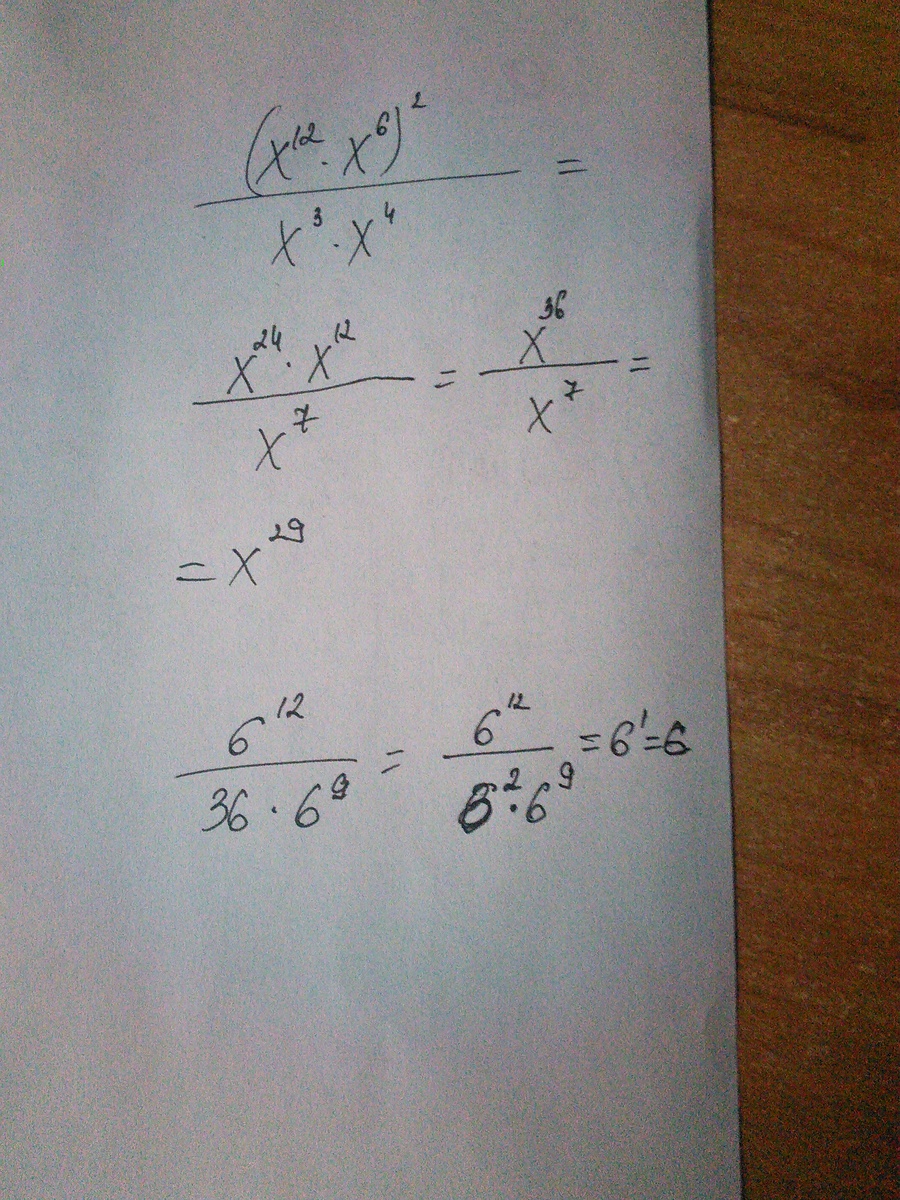 (x¹² · x⁶)² / x³ · x⁴ =
x²⁴ · x¹² / x⁷ = x³⁶ / x⁷ =
= x²⁹
6¹² / 36 · 6⁹ = 6¹² / 6² · 6⁹ = 6¹ = 6